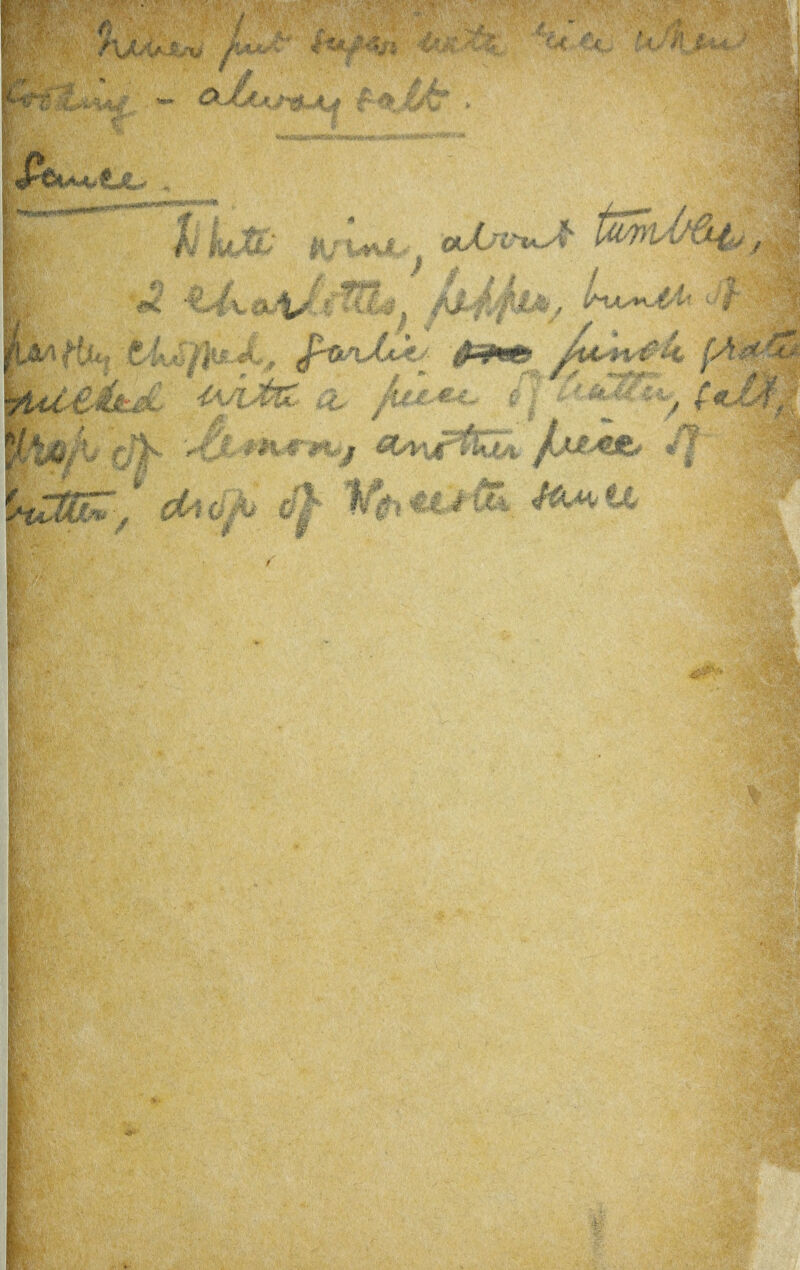 Never put sugar with rice when
Cooking - always salt.
Sauce.
White wine, about tumbler,
2 Charlottes, pepper, bunch of
parsley chopped, garlic pinch grated
with a piece of butter, salt,
drop of lemon, another piece of
butter, drop of Worcester sauce